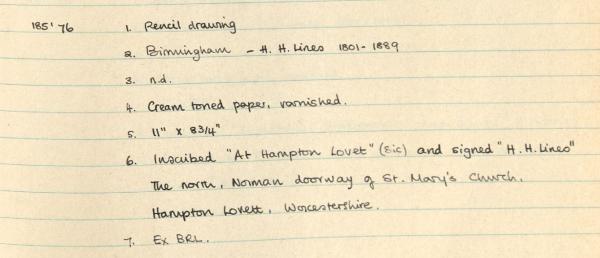 185'76 1. Pencil drawing
2. Birmingham - H. H. Lines 1801-1889
3. n.d.
4. Cream toned paper, varnished.
5. 11" x 8 3/4"
6. Inscibed "At Hampton Lovet" (sic) and signed "H.H.Lines"
The north, Norman doorway of St. Mary's Church.
Hampton Lovett, Worcestershire.
7. Ex BRL.